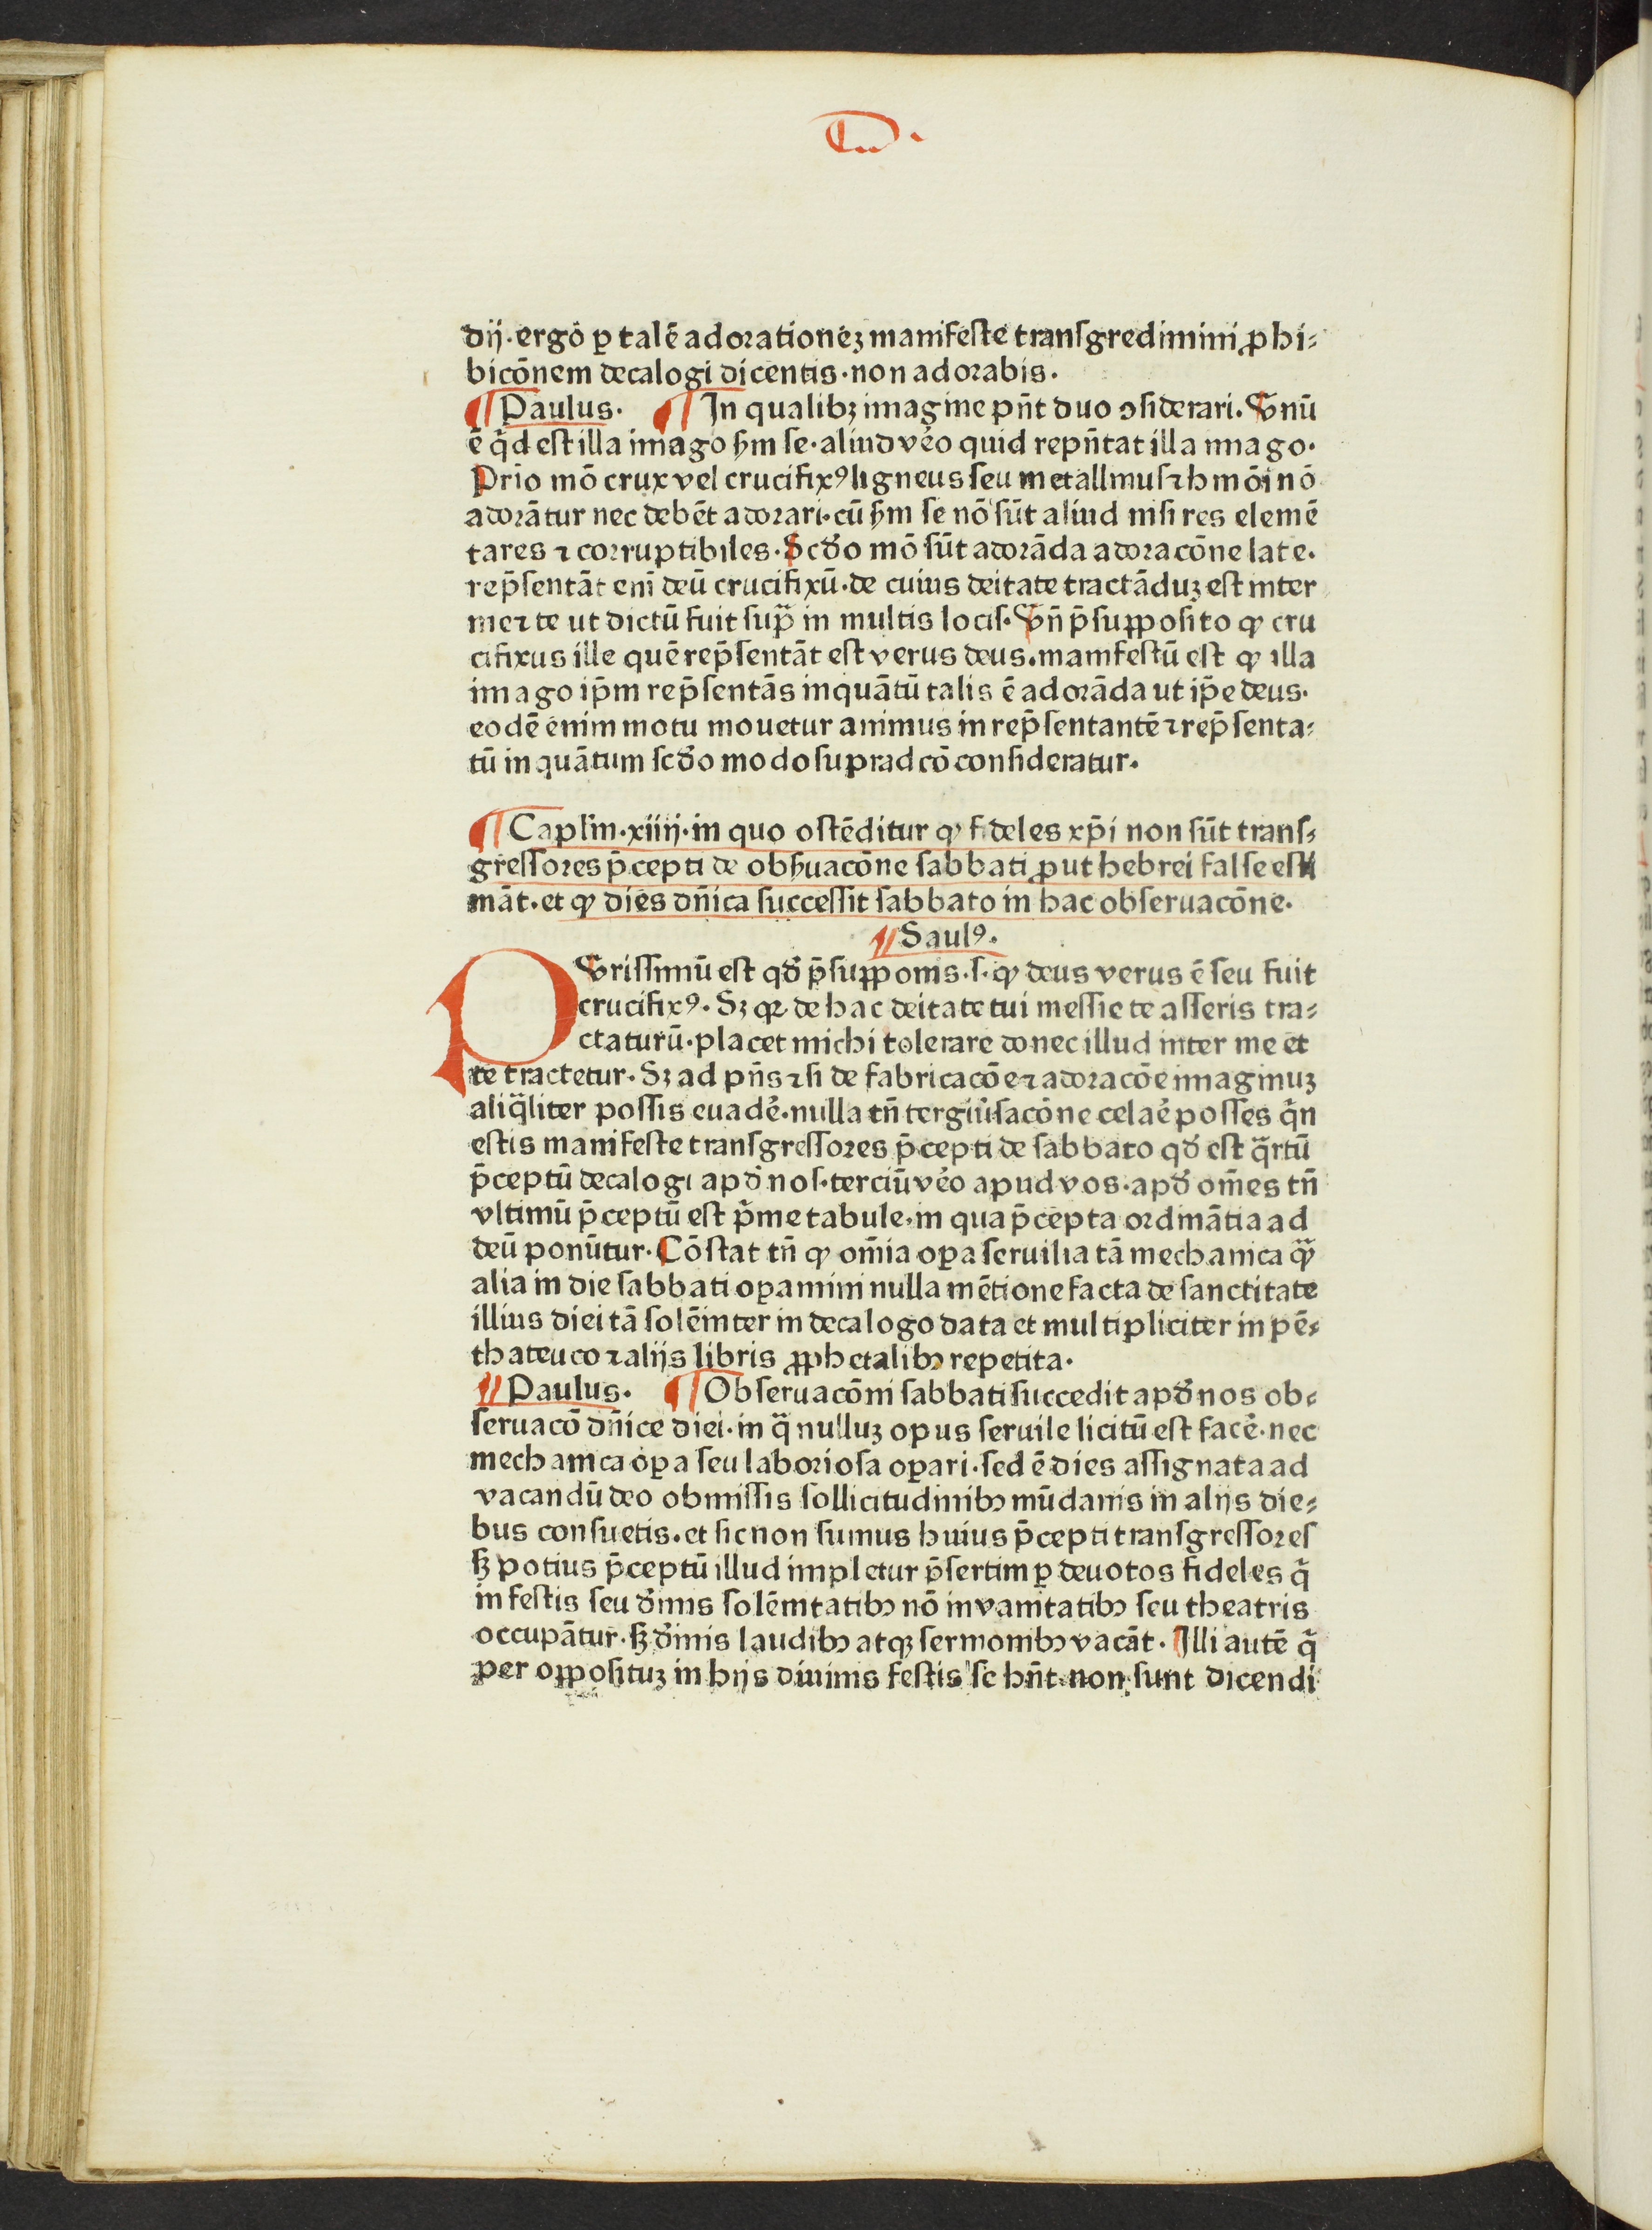 dij·ergo ꝑ talē adorationeꝫ manifeste transgredimini ꝓhi⸗
bicōnem decalogi dicentis·non adorabis·
¶ Paulus· ¶ In qualibꝫ imagine pn̄t duo ↄsiderari·Vnū
ē qͣd est illa imago ẜm se·aliud vēo quid repn̄tat illa imago·
Prio mō crux vel crucifixꝰ ligneus seu metallinus ⁊ hmōi nō
adorātur nec debēt adorari·cū ẜm se nō sūt aliud nisi res elemē
tares ⁊ corruptibiles·Scd̄o mō sūt adorāda adoracōne late·
rep̄sentāt eni deū crucifixū·de cuius deitate tractāduꝫ est inter
me ⁊ te ut dictū fuit supͣ in multis locis·Vn̄ p̄supposito ꝙ cru
cifixus ille quē rep̄sentāt est verus deus·manifestū est ꝙ illa
imago ip̄m rep̄sentās inquātū talis ē adorāda ut ip̄e deus·
eodē enim motu mouetur animus in rep̄sentantē ⁊ rep̄senta⸗
tū inquātum scd̄o modo supradcō consideratur·
¶ Caplm̄·xiiij·in quo ostēditur ꝙ fideles xp̄i non sūt trans⸗
gressores p̄cepti de obẜuacōne sabbati ꝓut hebrei false esti
māt·et ꝙ dies dn̄ica successit sabbato in hac obseruacōne·
¶ Saulꝰ·
P Vrissimū est qd̄ p̄supponis·s·ꝙ deus verus ē seu fuit
crucifixꝰ·Sꝫ qꝛ de hac deitate tui messie te asseris tra⸗
ctaturū·placet michi tolerare donec illud inter me et
te tractetur·Sꝫ ad pn̄s ⁊ si de fabricacōe ⁊ adoracōe imaginuꝫ
aliqͣliter possis euadē·nulla tn̄ tergiūsacōne celaē posses qͥn
estis manifeste transgressores p̄cepti de sabbato qd̄ est qͣrtū
p̄ceptū decalogi apd̄ nos·terciū vēo apud vos·apd̄ om̄es tn̄
vltimū p̄ceptū est pͥme tabule·in qua p̄cepta ordināntia ad
deū ponūtur·Cōstat tn̄ ꝙ om̄ia oꝑa seruilia tā mechanica qͣꝫ
alia in die sabbati oꝑamini nulla mētione facta de sanctitate
illius diei tā solēniter in decalogo data et multipliciter in pē⸗
thateuco ⁊ alijs libris ꝓphetalibꝫ repetita·
¶ Paulus· ¶ Obseruacōni sabbati succedit apd̄ nos ob⸗
seruacō dn̄ice diei·in qͣ nulluꝫ opus seruile licitū est facē·nec
mechanica oꝑa seu laboriosa oꝑari·sed ē dies assignata ad
vacandū deo obmissis sollicitudinibꝫ mūdanis in alijs die⸗
bus consuetis·et sic non sumus huius p̄cepti transgressores
ẜꝫ potius p̄ceptū illud impletur p̄sertim ꝑ deuotos fideles qͥ
in festis seu d̄inis solēnitatibꝫ nō in vanitatibꝫ seu theatris
occupātur·ẜꝫ d̄inis laudibꝫ atqꝫ sermonibꝫ vacāt·Illi autē qͥ
per oppósituꝫ in hijs diuinis festis se hn̄t non sunt dicendi